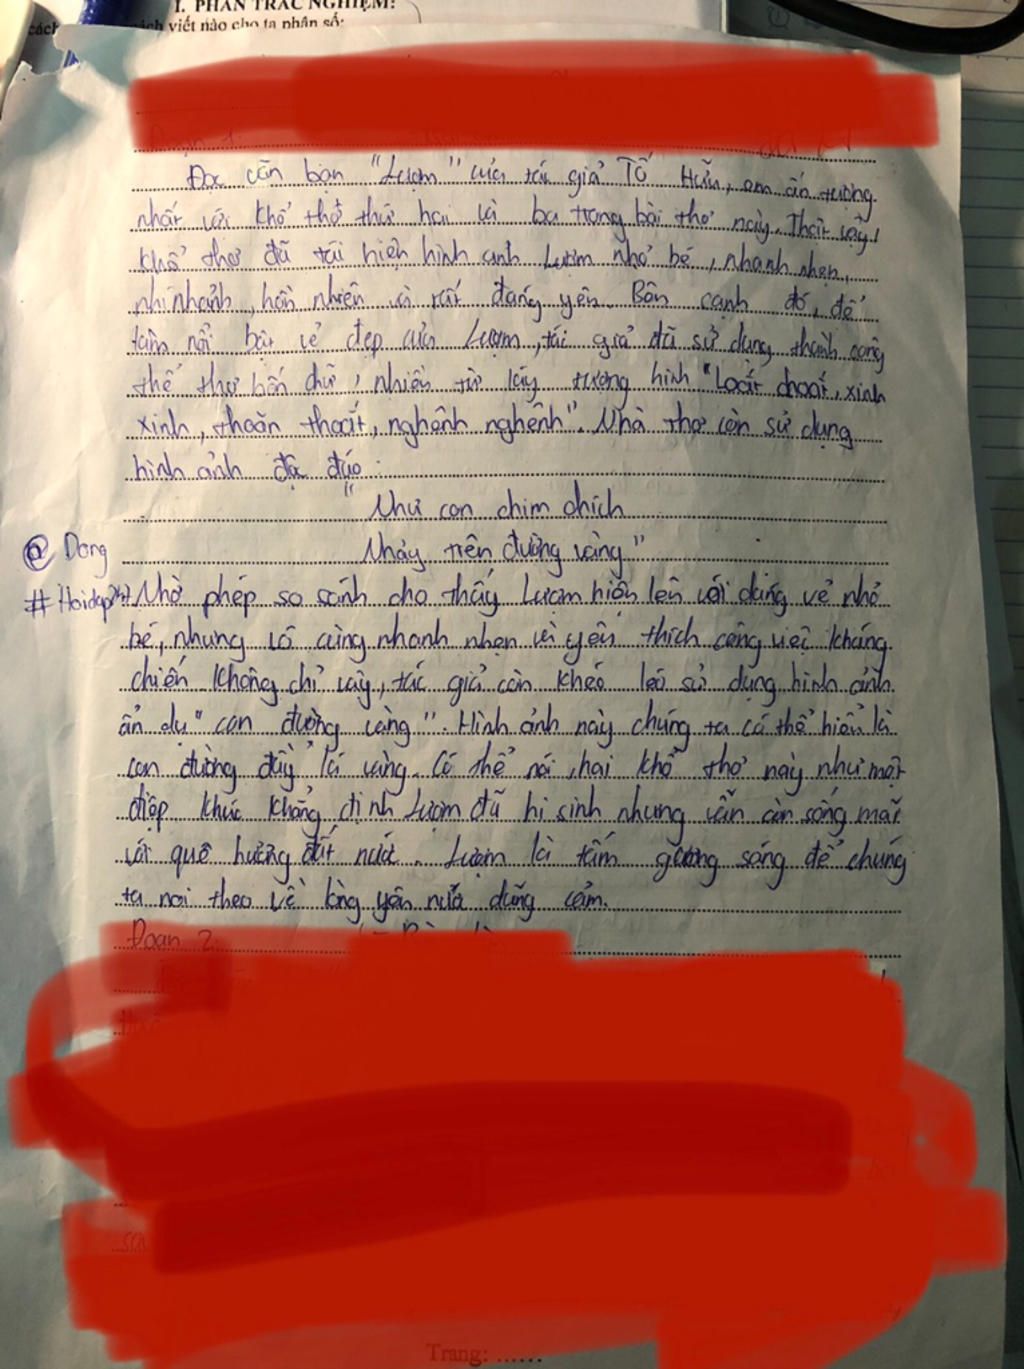 I. PHẦN TRẮC NGHIỆM:
cách viết nào cho ta phân số:
Đoạn 1:
Đọc văn bản "Lượm" của tác giả Tố Hữu, em ấn tượng
nhất với khổ thơ thứ hai và ba trong bài thơ này. Thật vậy,
khổ thơ đã tái hiện hình ảnh Lượm nhỏ bé, nhanh nhẹn,
nhí nhảnh, hồn nhiên và rất đáng yêu. Bên cạnh đó, để
làm nổi bật vẻ đẹp của Lượm, tác giả đã sử dụng thành công
thể thơ bốn chữ, nhiều từ láy tượng hình "Loắt choắt, xinh
xinh, thoăn thoắt, nghênh nghênh". Nhà thơ còn sử dụng
hình ảnh độc đáo:
"Như con chim chích
Nhảy trên đường vàng"
@ Dong
# Hoidap247
Nhờ phép so sánh cho thấy Lượm hiện lên với dáng vẻ nhỏ
bé, nhưng vô cùng nhanh nhẹn và yêu thích công việc kháng
chiến. Không chỉ vậy, tác giả còn khéo léo sử dụng hình ảnh
ẩn dụ "con đường vàng". Hình ảnh này chúng ta có thể hiểu là
con đường đầy lá vàng. Có thể nói, hai khổ thơ này như một
điệp khúc khẳng định Lượm đã hi sinh nhưng vẫn còn sống mãi
với quê hương đất nước. Lượm là tấm gương sáng để chúng
ta noi theo về lòng yêu nước dũng cảm.
Đoạn 2:
Trang: ......